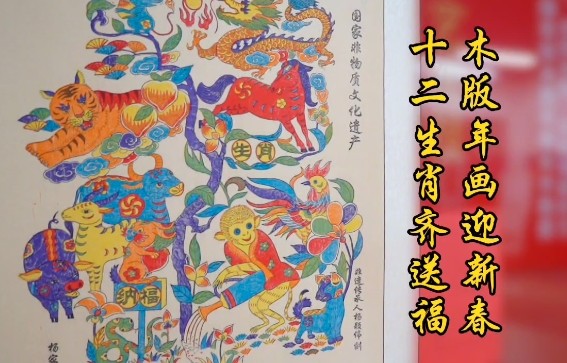 木版年画迎新春
十二生肖齐送福
国家非物质文化遗产
生肖
纳福
非遗传承人杨
杨家